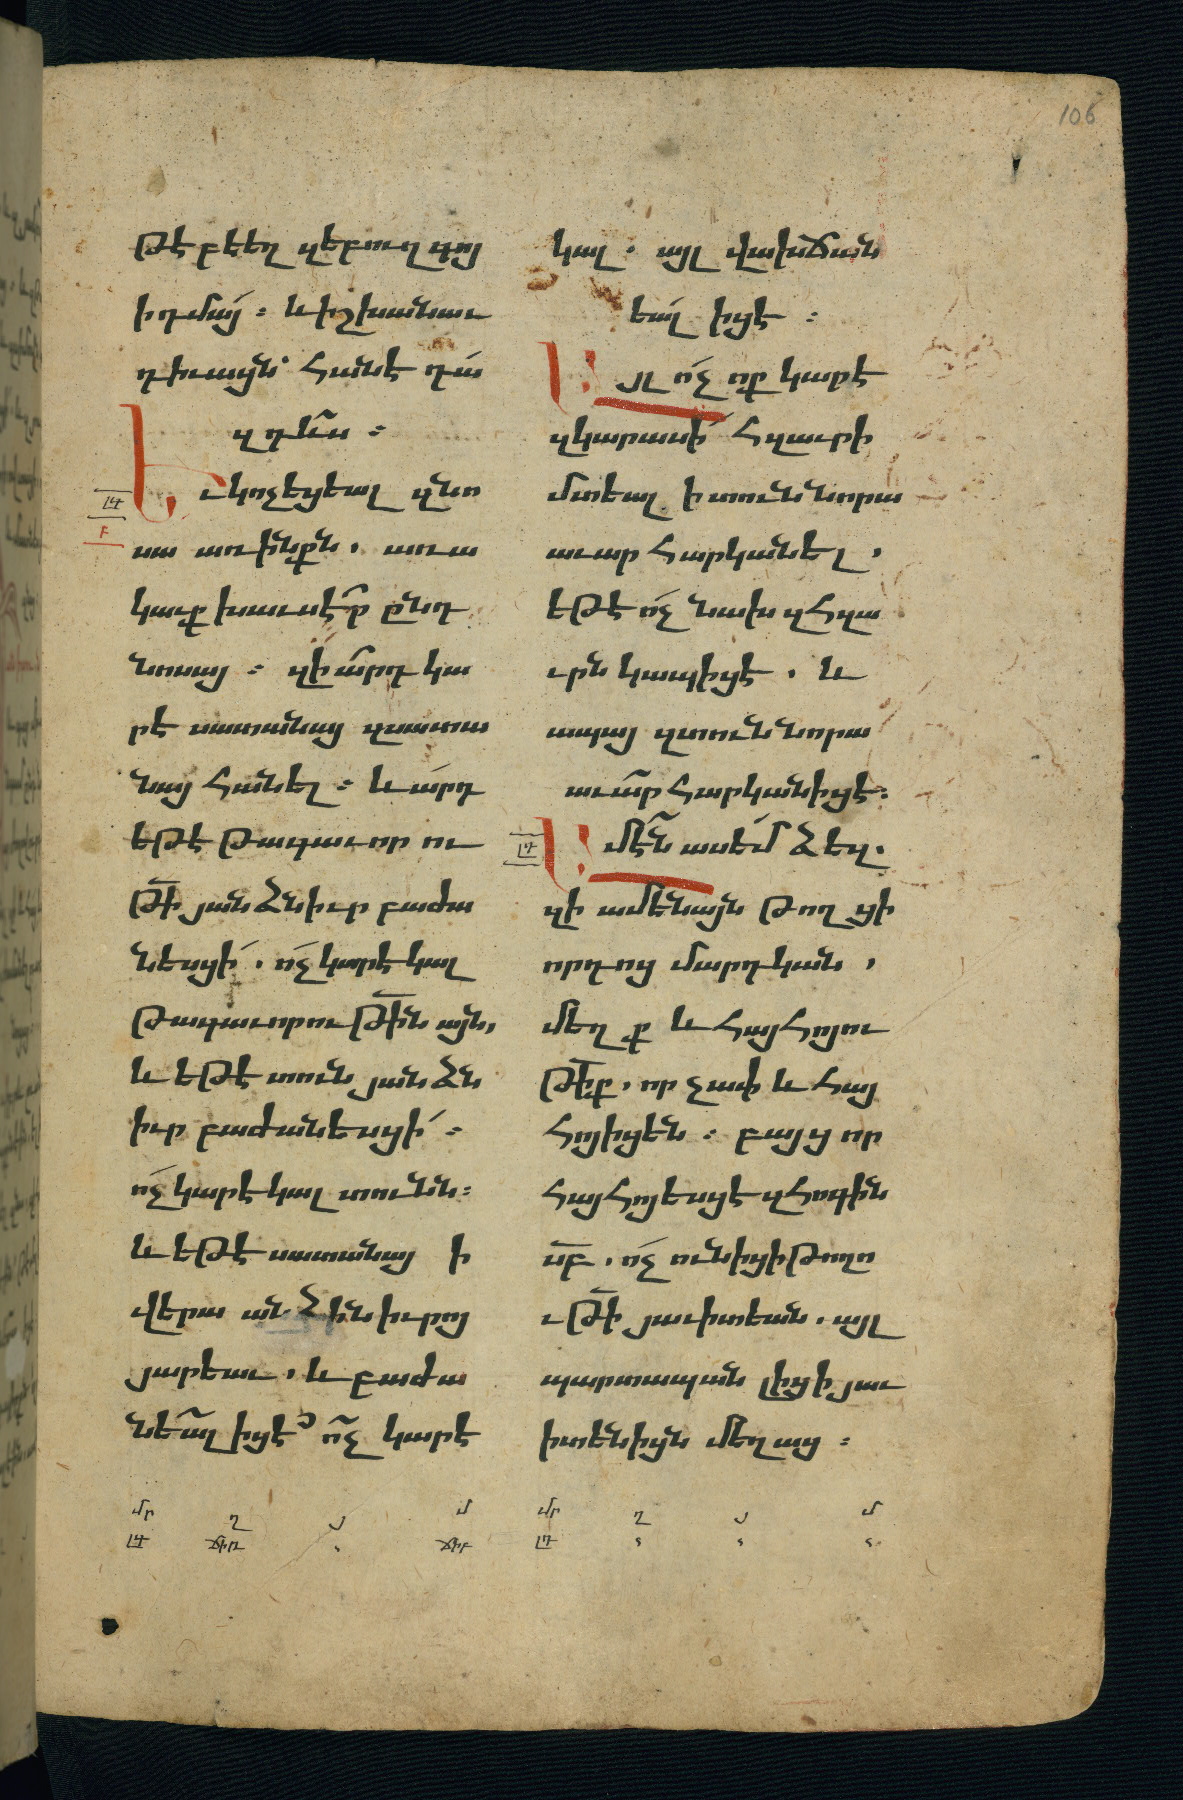 106
թէ բէեղ զեբուղ գոյ
ի դմա՛յ ։ և իշխանաւ
դիւացն՝ հանէ դա
զդևս ։
Եւ կոչեցեալ զնո
սա առ ինքն, առա
կաւք խաւսէր ընդ
նոսայ ։ զի՛արդ կա
րէ սատանայ զսատա
նայ հանել ։ և արդ
եթէ թագաւորու
թի յանձնիւր բաժա
նեսցի՛, ո՛չ կարէ կալ
թագաւորութին այն,
և եթէ տուն յանձն
իւր բաժանեսցի՛ ։
ո՛չ կարէ կալ տունն։
և եթէ սատանայ ի
վերա անձին իւրոյ
յարեաւ, և բաժա
նեալ իցէ՞ ո՛չ կարէ
կալ. այլ վախճան
եալ իցէ ։
Այլ ո՛չ ոք կարէ
զկարասի՛ հզաւրի
մտեալ ի տուն նորա
աւար հարկանել,
եթէ ո՛չ նախ զհզա
ւրն կապիցէ, և
ապայ զտուն նորա
աւար հարկանիցէ։
Ամէն ասեմ ձեզ.
զի ամենայն թողցի
որդոց մարդկան,
մեղք և հայհոյու
թիք, որ չափ և հայ
հոյիցեն ։ բայց որ
հայհոյեսցէ զհոգին
սբ, ո՛չ ունիցի թողո
ւթի յաւիտեան, այլ
պարտապան լիցի յաւ
իտենիցն մեղաց ։